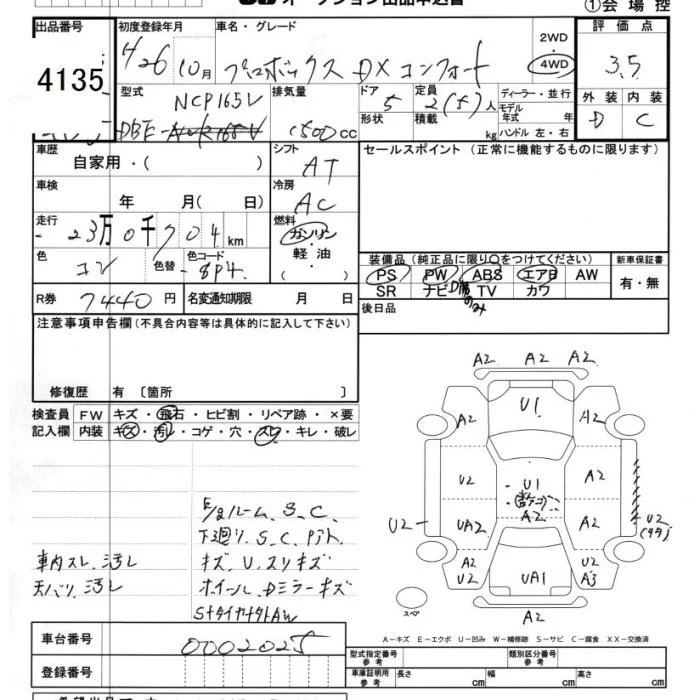 オークション出品申込書
①会場控
出品番号
4135
初度登録年月
H26 10月
車名・グレード
プロボックス DXコンフォート
2WD
4WD
評価点
3.5
外装 内装
D C
型式
NCP165V
DBE-
排気量
1500 cc
ドア
5
形状
定員
2(5)人
積載
kg
ディーラー・並行
モデル
年式 年
ハンドル 左・右
車歴
自家用・( )
シフト
AT
セールスポイント(正常に機能するものに限ります)
車検
年 月( 日)
冷房
AC
走行
23万0千704km
燃料
ガソリン
軽油
・( )
色
コン
色替
色コード
8P4
装備品(純正品に限り○をつけてください)
PS PW ABS エアB AW
SR ナビ TV カワ
新車保証書
有・無
R券
7440円
名変通知期限 月 日
後日品
注意事項申告欄(不具合内容等は具体的に記入して下さい)
修復歴 有〔箇所 〕
検査員
記入欄
FW キズ・飛石・ヒビ割・リペア跡・×要
内装 キズ・汚レ・コゲ・穴・スレ・キレ・破レ
下廻り.S.C.
キズ.U.スリキズ
車内スレ.汚レ
天バリ.汚レ
ホイール.Dミラーキズ
SタイヤナタトAW
A2 A2 A2
U1
A2 A2
U2 U1 A2
A2
U2 UA2 A2 U2
A2
U2 UA1 U2
A3
A2
スペア
A-キズ E-エクボ U-凹み W-補修跡 S-サビ C-腐食 XX-交換済
車台番号
0002025
登録番号
型式指定番号
参考
類別区分番号
参考
車庫証明用
参考
長さ cm 幅 cm 高さ cm